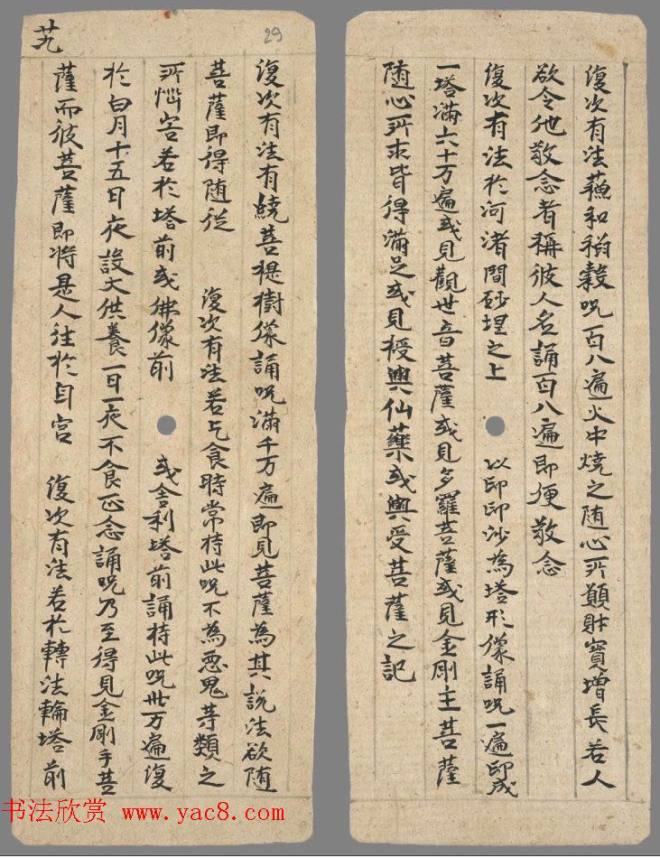 復次有法蘇和稻穀呪百八遍火中燒之随心所願財寶增長若人
欲令他敬念者稱彼人名誦百八遍即便敬念
復次有法於河渚間砂埕之上 以印印沙為塔形像誦呪一遍印成
一塔滿六十万遍或見觀世音菩薩或見多羅菩薩或見金剛主菩薩
随心所求皆得滿足或見授與仙藥或與受菩薩之記
29
艽
復次有法有繞菩提樹像誦呪滿千万遍即見菩薩為其說法欲随
菩薩即得随從 復次有法若乞食時常持此呪不為惡鬼等類之
所惱害若於塔前或佛像前 或舍利塔前誦持此呪卅万遍復
於白月十五日夜設大供養一日一夜不食正念誦呪乃至得見金剛手菩
薩而彼菩薩即將是人往於自宮 復次有法若於轉法輪塔前
书法欣赏 www.yac8.com